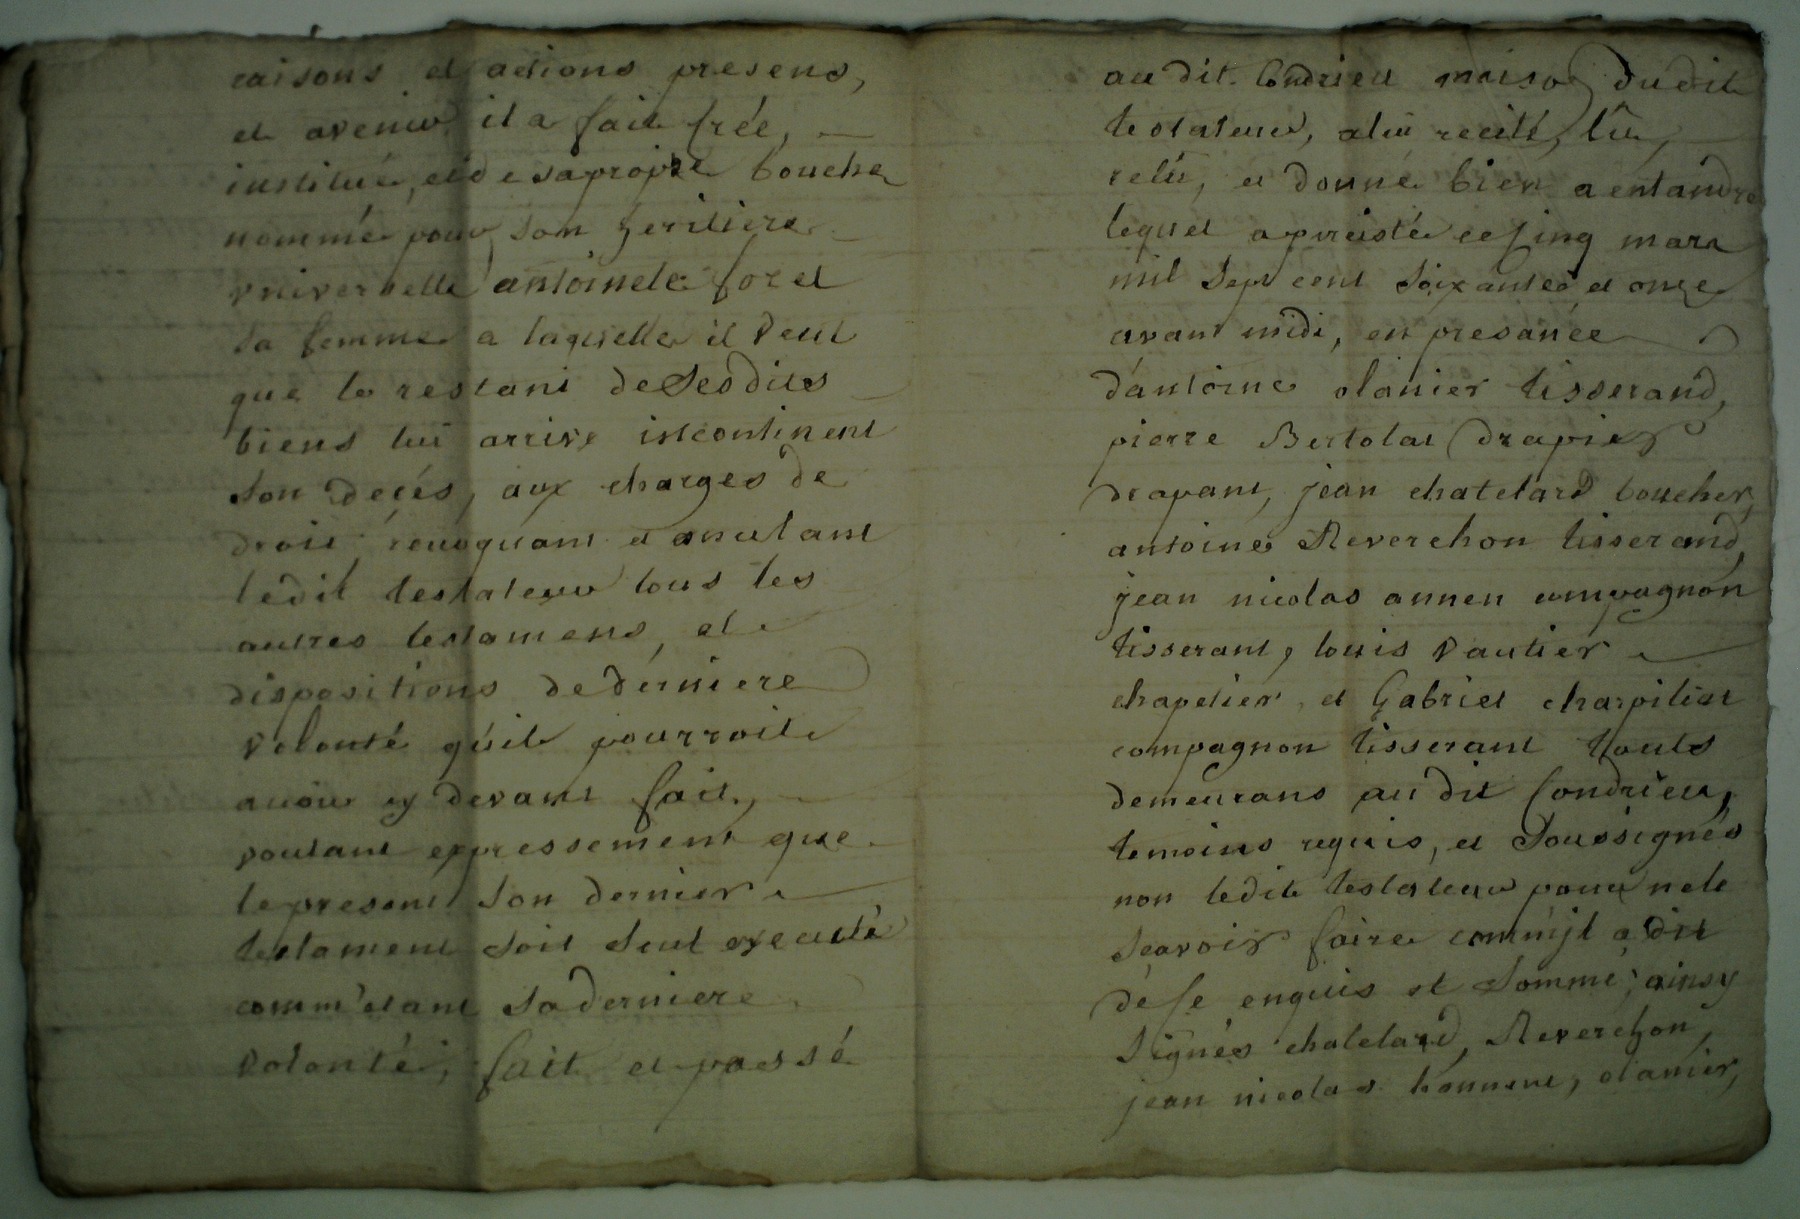 raisons et actions presens,
et avenir il a fait créé,
institué, et de sa propre bouche
nommé pour son heritiere
vniverselle antoinete forel
sa femme a laquelle il veut
que le restant de Ses dits
biens lui arrive incontinent
Son decés, aux charges de
droit revoquant et anulant
ledit testateur tous les
autres testamens, et
dispositions de derniere
volonté qu'il pourroit
avoir cy devant fait,
voulant expressement que
le present Son dernier
testament Soit Seul executé
comm'etant Sa derniere
volonté, fait et passé
au dit Condrieu maison dudit
testateur, a lui recité, lû,
relû, et donné bien a entandre
lequel a persisté ce Cinq mars
mil Sept cent Soixante et onze
avant midi, en presance
d'antoine olanier tisserand,
pierre Bertolat drapier
drapant, jean chatelard boucher,
antoine Reverchon tisserand,
jean nicolas annen compagnon
tisserant, louis vautier
chapelier, et Gabriel charpilier
compagnon tisserant touts
demeurans au dit Condrieu,
temoins requis, et Soussignés
non ledit testateur pour ne le
Sçavoir faire comm'jl a dit
de Ce enquis et Sommé; ainsy
Signés chatelard, Reverchon,
jean nicolas, olanier,